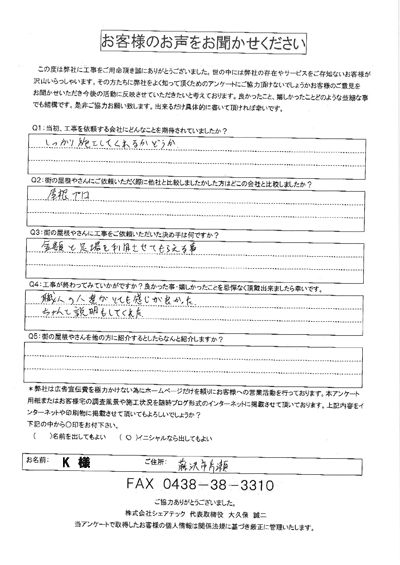 お客様のお声をお聞かせください
この度は弊社に工事をご用命頂き誠にありがとうございました。世の中には弊社の存在やサービスをご存知ないお客様が
沢山いらっしゃいます。その方たちに弊社をよく知って頂くためのアンケートにご協力頂けないでしょうかお客様のご意見を
お聞かせいただき今後の活動に反映させていただきたいと考えております。良かったこと、嬉しかったことどのような些細な事
でも結構です。是非ご協力お願い致します。出来るだけ具体的に書いて頂ければ幸いです。
Q1:当初、工事を依頼する会社にどんなことを期待されていましたか?
しっかり施工してくれるかどうか
Q2:街の屋根やさんにご依頼いただく際に他社と比較しましたかした方はどこの会社と比較しましたか?
屋根では
Q3:街の屋根やさんに工事をご依頼いただいた決め手は何ですか?
金額と足場を利用させてもらえる事
Q4:工事が終わってみていかがですか?良かった事・嬉しかったことを忌憚なく頂戴出来ましたら幸いです。
職人の人達がとても感じが良かった
ちゃんと説明もしてくれた
Q5:街の屋根やさんを他の方に紹介するとしたらなんと紹介しますか?
*弊社は広告宣伝費を極力かけない為にホームページだけを頼りにお客様への営業活動を行っております。本アンケート
用紙またはお客様宅の調査風景や施工状況を随時ブログ形式のインターネットに掲載させて頂いております。上記内容をイ
ンターネットや印刷物に掲載させて頂いてもよろしいでしょうか?
下記の中から〇印をお付下さい。
( )名前を出してもよい (〇)イニシャルなら出してもよい
お名前: K 様 ご住所:
FAX 0438-38-3310
ご協力ありがとうございました。
株式会社シェアテック 代表取締役 大久保 誠二
当アンケートで取得したお客様の個人情報は関係法規に基づき厳正に管理いたします。